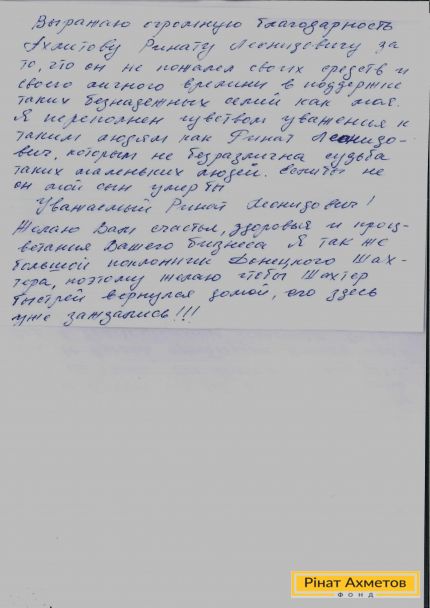 Выражаю огромную благодарность
Ахметову Ринату Леонидовичу за
то, что он не пожалел своих средств и
своего личного времени в поддержке
таких безнадежных семей как моя.
Я переполнен чувством уваженья к
таким людям как Ринат Леонидо-
вич, которым не безразлична судьба
таких маленьких людей. Если бы не
он мой сын умер бы
Уважаемый Ринат Леонидович!
Желаю Вам счастья, здоровья и проц-
ветания Вашего бизнеса Я так же
большой поклонник Донецкого Шах-
тера, поэтому желаю чтобы Шахтер
быстрей вернулся домой, его здесь
уже заждались!!!
Рінат Ахметов
ФОНД